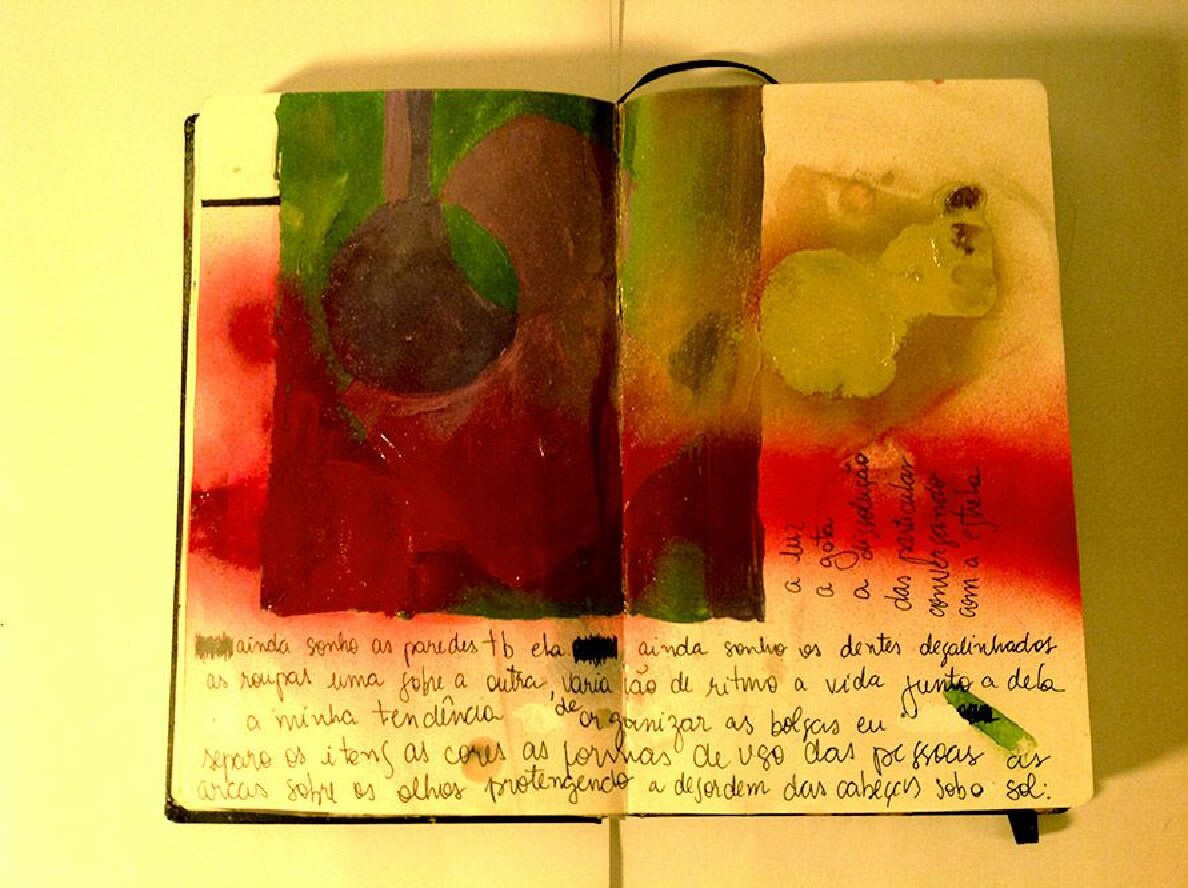 a luz
a gota
a dissolução
das partículas
conversando
com a estrela
ainda sonho as paredes tb ela ainda sonho os dentes degalinhados
as roupas uma sobre a outra, varia ião de ritmo a vida junto a dela
a minha tendência de organizar as bolsas eu
separo os itens as cores as formas de uso das pessoas as
arcas sobre os olhos protengendo a desordem das cabeças sobo sol: